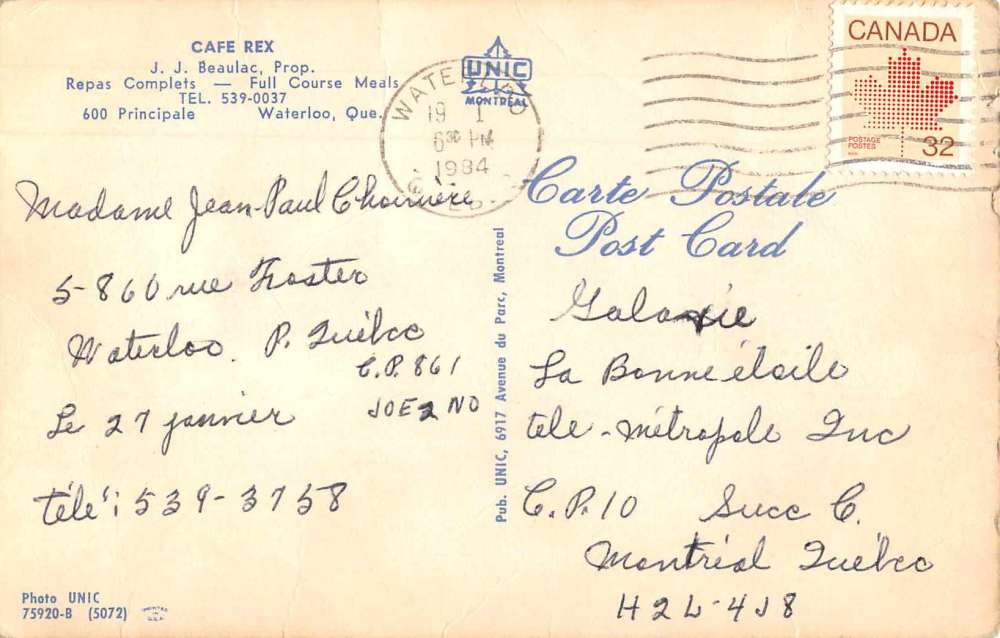 CAFE REX
J. J. Beaulac, Prop.
Repas Complets — Full Course Meals
TEL. 539-0037
600 Principale Waterloo, Que.
UNIC
MONTREAL
WATERLOO
19 I
630 PM
1984
CANADA
POSTAGE
POSTES
32
Carte Postale
Post Card
Madame Jean-Paul
5-860 rue Foster
Waterloo. P. Québec
C.P. 861
JOE 2 NO
Le 27 janvier
télé: 539-3758
Pub. UNIC, 6917 Avenue du Parc, Montreal
Galaxie
La Bonne étoile
tele-métropole Inc
C.P. 10 Succ C.
Montréal Québec
H2L-4J8
Photo UNIC
75920-B (5072)